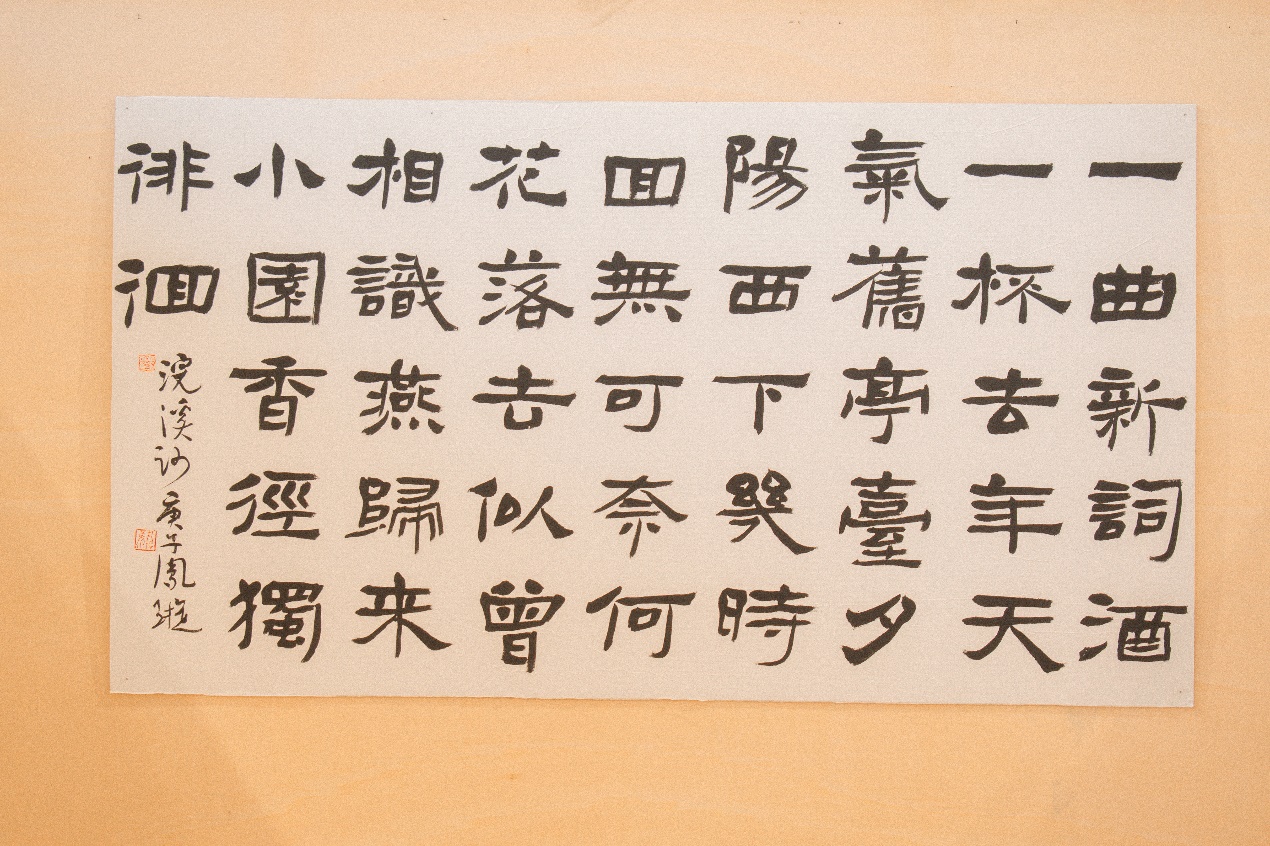 一曲新詞酒
一杯去年天
氣舊亭臺夕
陽西下幾時
回無可奈何
花落去似曾
相識燕歸来
小園香徑獨
徘徊
浣溪沙庚子鳳